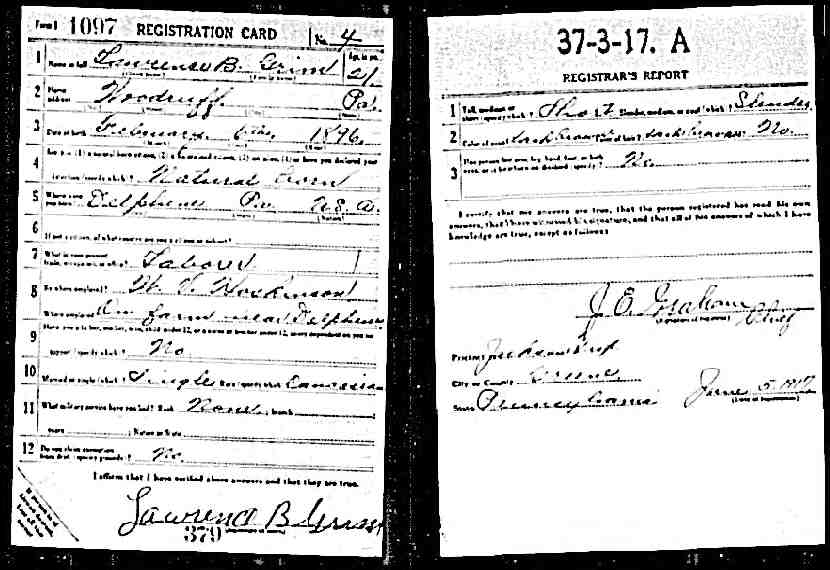 Form 1 1097 REGISTRATION CARD No. 4
1 Name in full Lawrence B. Grim Age, in yrs. 21
2 Home address Woodruff Pa.
3 Date of birth February 6th 1896
4 Are you (1) a natural born citizen, (2) a naturalized citizen, (3) an alien, (4) or have you declared your
intention (specify which)? Natural Born
5 Where were you born? Delphene Pa. U.S.A.
6 If not a citizen, of what country are you a citizen or subject?
7 What is your present trade, occupation, or office? Laborer
8 By whom employed? Hoskinson
Where employed? On farm near Delphene
9 Have you a father, mother, wife, child under 12, or a sister or brother under 12, solely dependent on you for
support (specify which)? No
10 Married or single (which)? Single Race (specify which)? Caucasian
11 What military service have you had? Rank None ; branch
years ; Nation or State
12 Do you claim exemption from draft (specify grounds)? No
I affirm that I have verified above answers and that they are true.
Lawrence B Grim
379
37-3-17. A
REGISTRAR'S REPORT
1 Tall, medium, or short (specify which)? Short Slender, medium, or stout (which)? Slender
2 Color of eyes? Dark brown Color of hair? Dark brown Bald? No.
3 Has person lost arm, leg, hand, foot, or both eyes, or is he otherwise disabled (specify)? No
I certify that my answers are true, that the person registered has read his own
answers, that I have witnessed his signature, and that all of his answers of which I have
knowledge are true, except as follows:
J. E. Graham
(Signature of registrar) Chief
Precinct Jackson Twp
City or County Greene
State Pennsylvania June 5, 1917
(Date of registration)